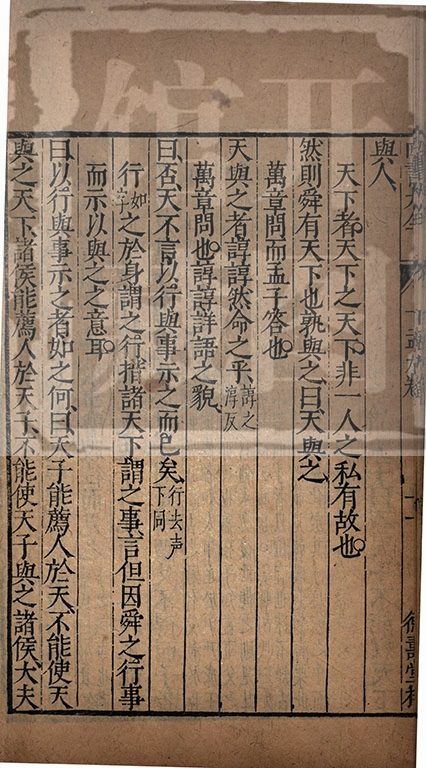 與人
天下者天下之天下非一人之私有故也
然則舜有天下也孰與之曰天與之
萬章問而孟子答也
天與之者諄諄然命之乎諄之淳反
萬章問也諄諄詳語之貌
曰否天不言以行與事示之而已矣行去声下同
行如字之於身謂之行措諸天下謂之事言但因舜之行事
而示以與之之意耳
曰以行與事示之者如之何曰天子能薦人於天不能使天
與之天下諸侯能薦人於天子不能使天子與之諸侯大夫